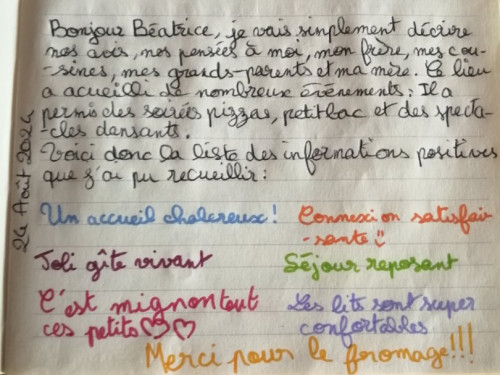 Bonjour Béatrice, je vais simplement décrire
nos avis, nos pensées à moi, mon frère, mes cou-
-sines, mes grands-parents et ma mère. Ce lieu
a acueilli de nombreux événements : Il a
permis des soirées pizzas, petit bac et des specta-
-cles dansants.
Voici donc la liste des informations positives
que j'ai pu recueillir :
24 Août 2024
Un accueil chaleureux !
Connexion satisfai-
-sante
Joli gîte vivant
Séjour reposant
C'est mignon tout
ces petits
Les lits sont super
confortables
Merci pour le fromage !!!